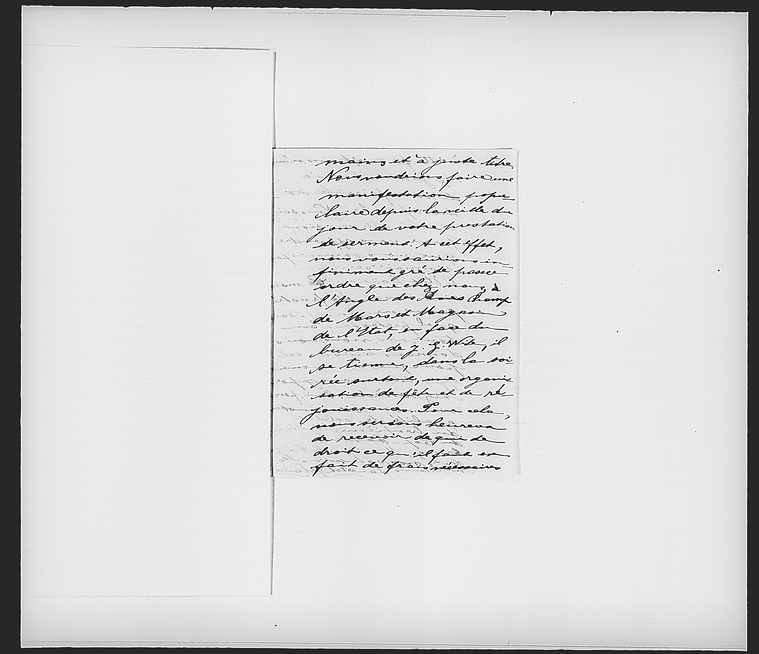 mains et à juste titre.
Nous voudrions faire une
manifestation popu
laire depuis la veille du
jour de votre prestation
de serment. A cet effet,
nous vous saurions in
finiment gré de passer
ordre que chez nous, à
l'Angle des Rues Champ
de Mars et Magasin
de l'Etat, en face du
bureau de J. G. il
se tienne, dans la soi
rée surtout, une organi
sation de fête et de ré
jouissances. Pour cela,
nous serions heureux
de recevoir de qui de
droit ce qu'il faut en
fait de frais nécessaires